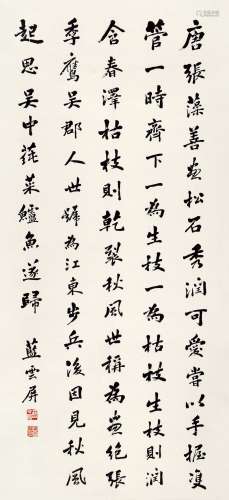 唐張藻善畫松石秀潤可愛嘗以手握雙
管一時齊下一為生枝一為枯枝生枝則潤
含春澤枯枝則乾裂秋風世稱為畫絕張
季鷹吳郡人世號為江東步兵後因見秋風
起思吳中蓴菜鱸魚遂歸 藍雲屏